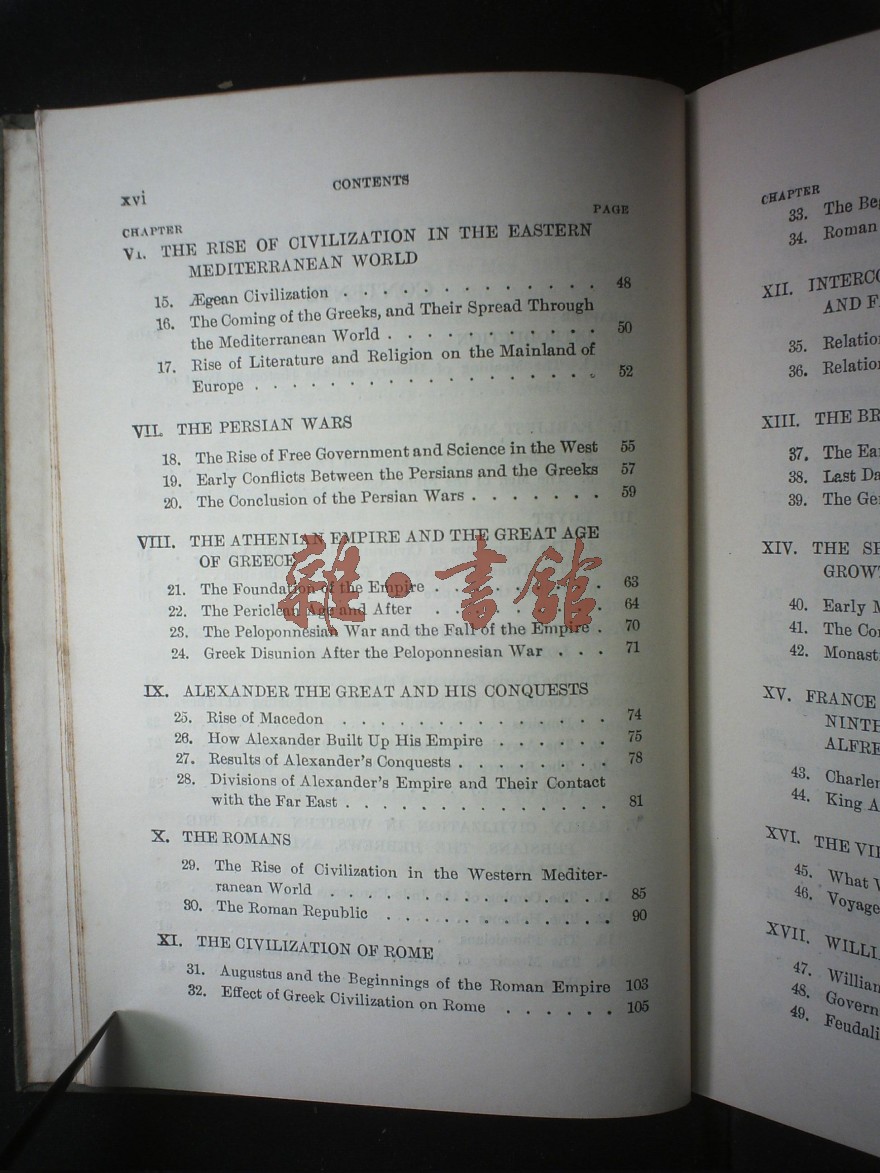 xvi
CONTENTS
CHAPTER
PAGE
VI. THE RISE OF CIVILIZATION IN THE EASTERN
MEDITERRANEAN WORLD
15. Ægean Civilization . . . . . . . . . . . . . 48
16. The Coming of the Greeks, and Their Spread Through
the Mediterranean World . . . . . . . . . . 50
17. Rise of Literature and Religion on the Mainland of
Europe . . . . . . . . . . . . . . . . 52
VII. THE PERSIAN WARS
18. The Rise of Free Government and Science in the West 55
19. Early Conflicts Between the Persians and the Greeks 57
20. The Conclusion of the Persian Wars . . . . . . . 59
VIII. THE ATHENIAN EMPIRE AND THE GREAT AGE
OF GREECE
21. The Foundation of the Empire . . . . . . . . 63
22. The Periclean Age and After . . . . . . . . 64
23. The Peloponnesian War and the Fall of the Empire . 70
24. Greek Disunion After the Peloponnesian War . . . 71
雜·書館
IX. ALEXANDER THE GREAT AND HIS CONQUESTS
25. Rise of Macedon . . . . . . . . . . . . . 74
26. How Alexander Built Up His Empire . . . . . . 75
27. Results of Alexander's Conquests . . . . . . . . 78
28. Divisions of Alexander's Empire and Their Contact
with the Far East . . . . . . . . . . . . . 81
X. THE ROMANS
29. The Rise of Civilization in the Western Mediter-
ranean World . . . . . . . . . . . . . . 85
30. The Roman Republic . . . . . . . . . . . 90
XI. THE CIVILIZATION OF ROME
31. Augustus and the Beginnings of the Roman Empire 103
32. Effect of Greek Civilization on Rome . . . . . . 105
CHAPTER
33. The
34. Roman
XII.
AND
35.
36.
XIII. THE
37. The
38. Last
39. The
XIV. THE
40. Early
41. The
42.
XV. FRANCE
43.
44. King
XVI. THE
45. What
46.
XVII.
47. William
48.
49.